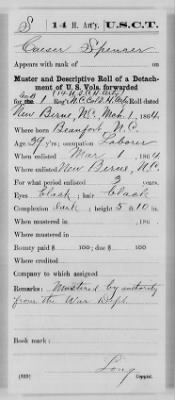 S 14 H. Art'y. U.S.C.T.
Caesar Spenser
Appears with rank of
Muster and Descriptive Roll of a Detach-
ment of U. S. Vols. forwarded
for the 1 Reg't N.C. Col'd H. Art'y Roll dated
New Berne, N.C. Mch. 1, 1864.
Where born Beaufort, N.C.
Age 39 y'rs; occupation Labourer
When enlisted Mar 1, 1864
Where enlisted New Berne, N.C.
For what period enlisted 3 years.
Eyes black; hair black
Complexion dark; height 5 ft. 10 in.
When mustered in , 186 .
Where mustered in
Bounty paid $ 100; due $ 100
Where credited
Company to which assigned
Remarks: Mustered by authority
from the War Dept.
Book mark:
Long
Copyist.